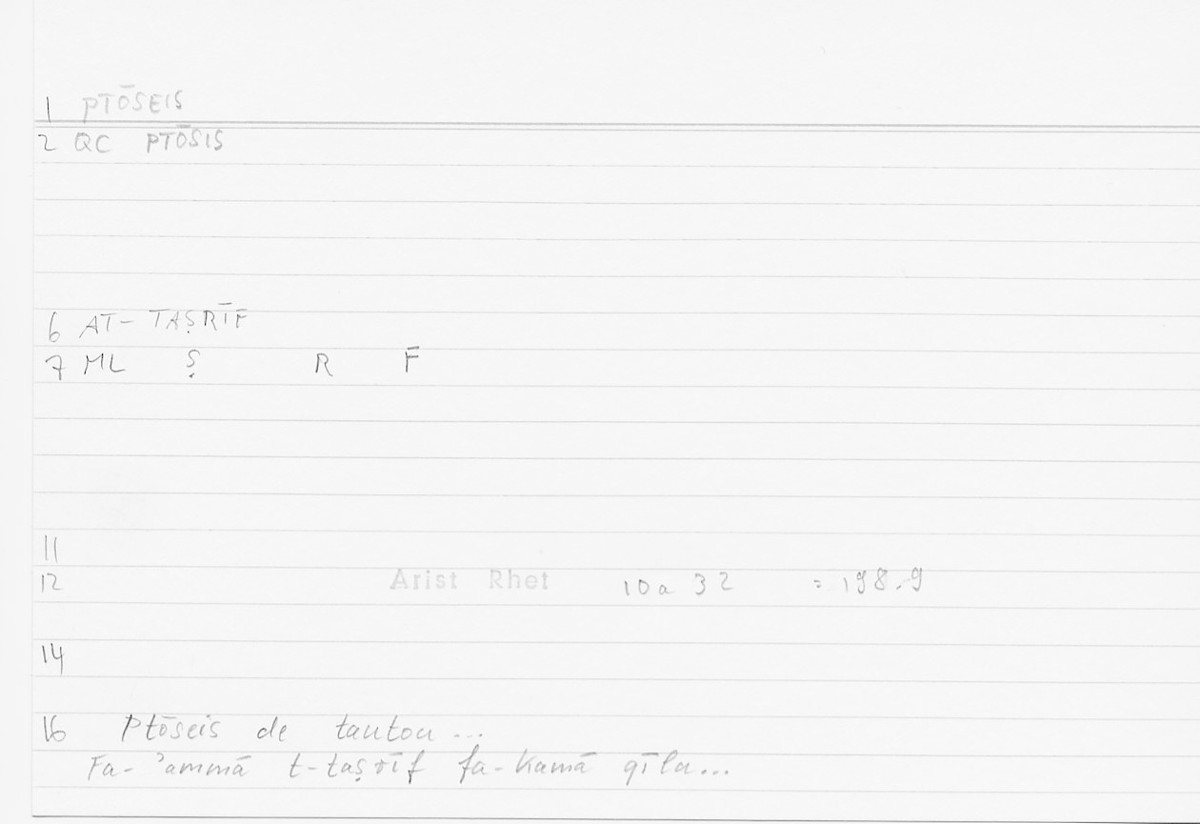 1 PTŌSEIS
2 QC PTŌSIS
6 AT-TAṢRĪF
7 ML Ṣ R F
11
12 Arist Rhet 10a 32 = 198.9
14
16 Ptōseis de tautou...
Fa-ʾammā t-taṣrīf fa-kamā qīla...